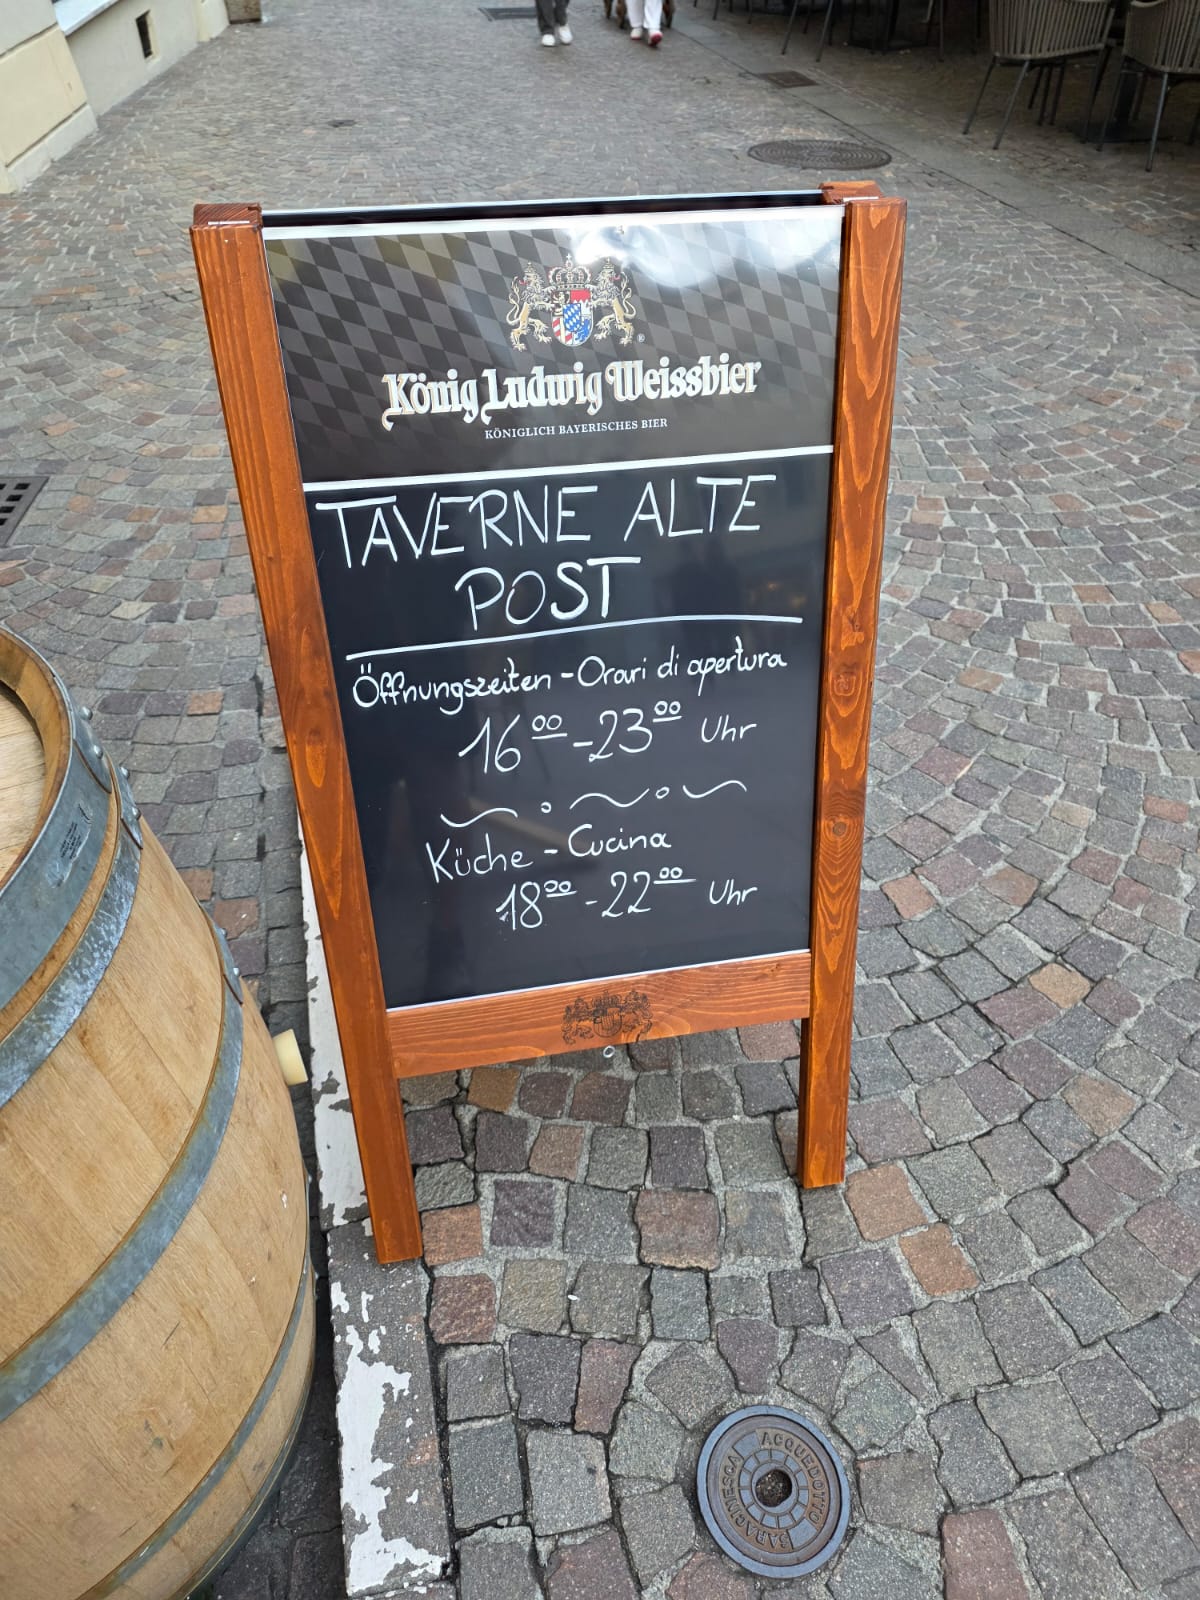 König Ludwig Weissbier
KÖNIGLICH BAYERISCHES BIER
TAVERNE ALTE
POST
Öffnungszeiten - Orari di apertura
16⁰⁰ - 23⁰⁰ Uhr
Küche - Cucina
18⁰⁰ - 22⁰⁰ Uhr
ACQUEDOTTO
SARACINESCA